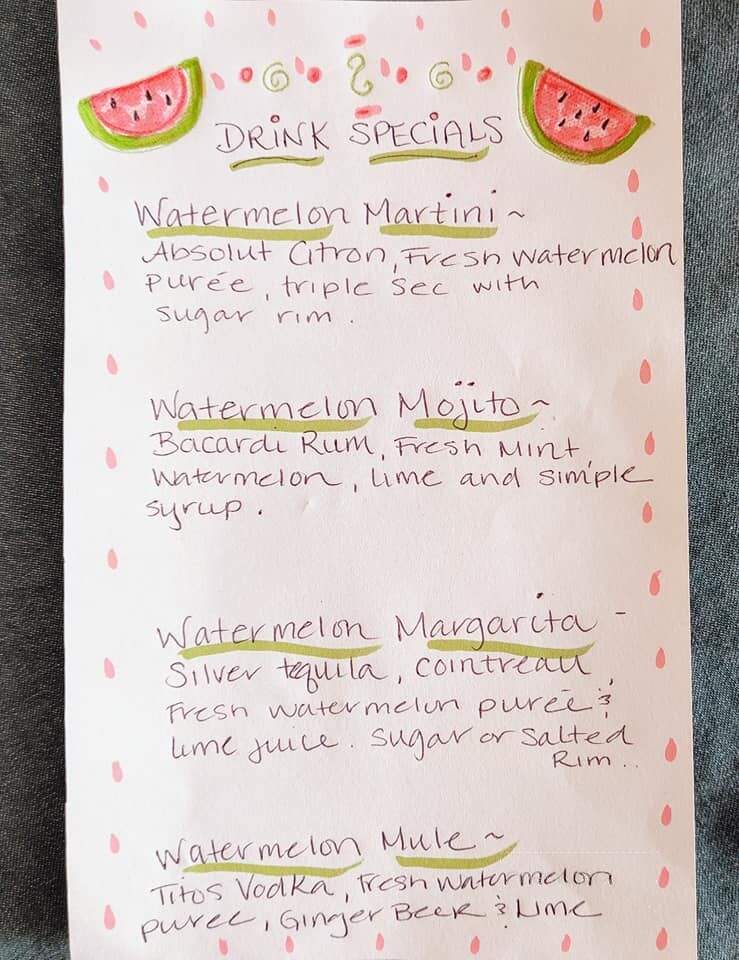 DRINK SPECIALS
Watermelon Martini ~
Absolut Citron, Fresh watermelon
purée, triple sec with
sugar rim.
Watermelon Mojito ~
Bacardi Rum, Fresh Mint,
watermelon, lime and simple
syrup.
Watermelon Margarita -
Silver tequila, cointreau,
Fresh watermelon purée &
lime juice. Sugar or Salted
Rim..
Watermelon Mule ~
Titos Vodka, Fresh watermelon
puree, Ginger Beer & Lime